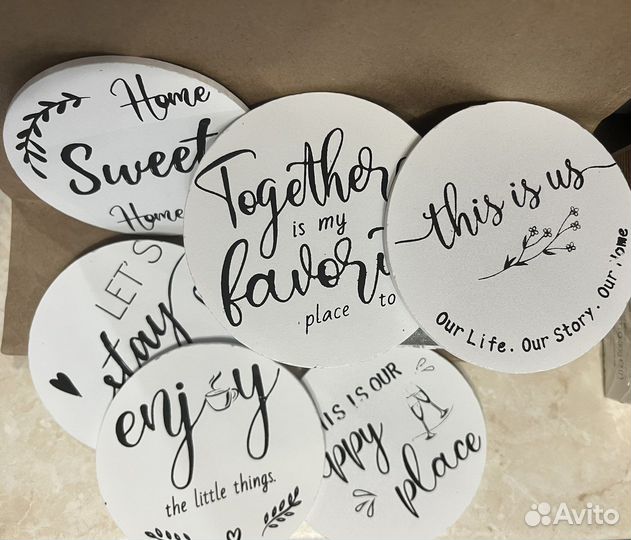 Home
Sweet
Home
Together
is my
favori
place to
this is us
Our Life. Our Story. Our Home
LET'S
stay
enjoy
the little things.
IS OUR
place
Avito